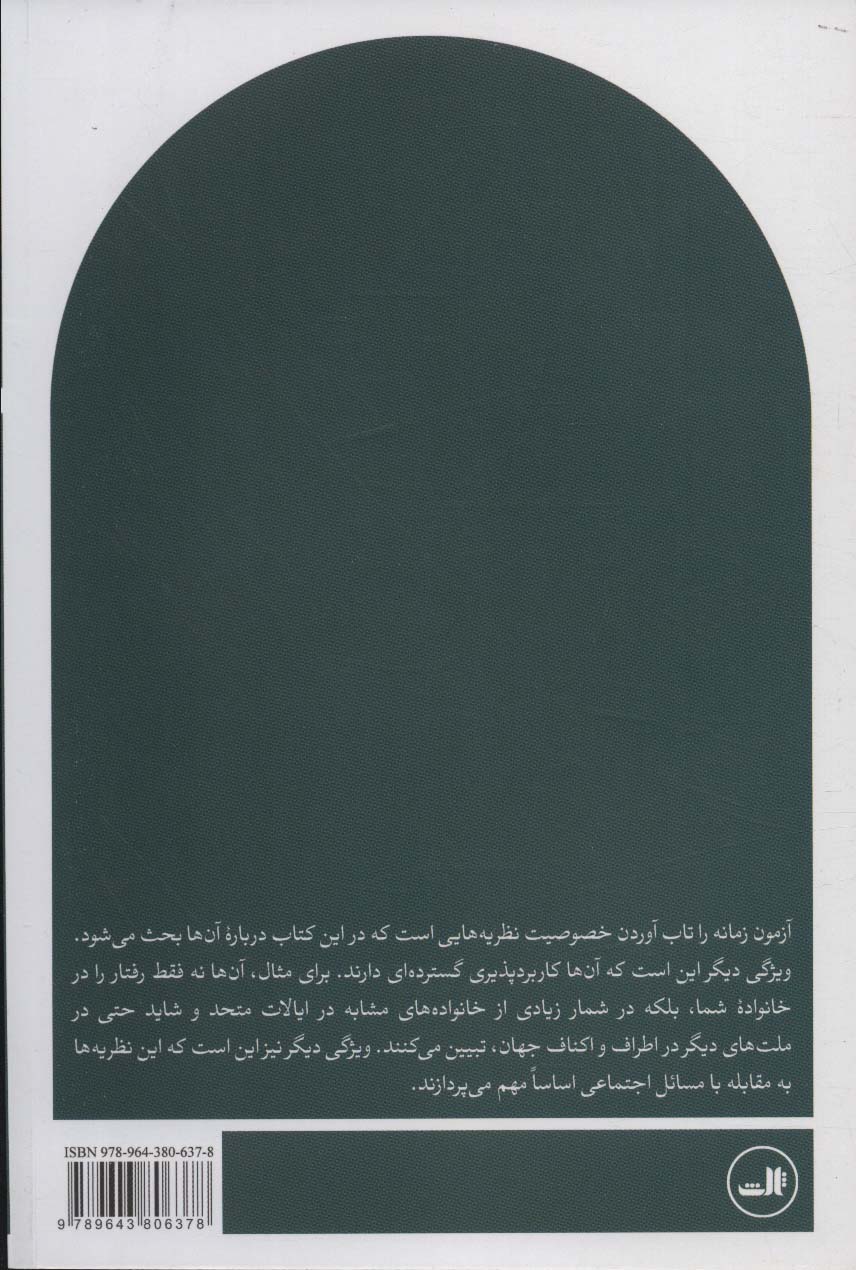 آزمون زمانه را تاب آوردن خصوصیت نظریه‌هایی است که در این کتاب دربارهٔ آن‌ها بحث می‌شود.
ویژگی دیگر این است که آن‌ها کاربردپذیری گسترده‌ای دارند. برای مثال، آن‌ها نه فقط رفتار را در
خانوادهٔ شما، بلکه در شمار زیادی از خانواده‌های مشابه در ایالات متحد و شاید حتی در
ملت‌های دیگر در اطراف و اکناف جهان، تبیین می‌کنند. ویژگی دیگر نیز این است که این نظریه‌ها
به مقابله با مسائل اجتماعی اساساً مهم می‌پردازند.
ISBN 978-964-380-637-8
9 789643 806378
ثالث